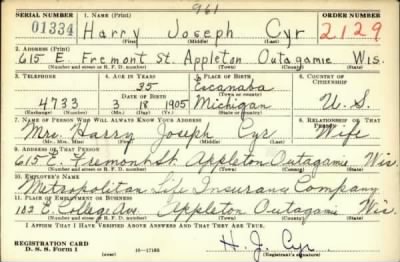 961
SERIAL NUMBER 1. NAME (Print) ORDER NUMBER
01334 Harry Joseph Cyr 2129
(First) (Middle) (Last)
2. ADDRESS (Print)
615 E. Fremont St. Appleton Outagamie Wis.
(Number and street or R. F. D. number) (Town) (County) (State)
3. TELEPHONE 4. AGE IN YEARS 5. PLACE OF BIRTH 6. COUNTRY OF CITIZENSHIP
35 Escanaba
DATE OF BIRTH (Town or county)
4733 3 18 1905 Michigan U. S.
(Mo.) (Day) (Yr.) (State or country)
7. NAME OF PERSON WHO WILL ALWAYS KNOW YOUR ADDRESS 8. RELATIONSHIP OF THAT PERSON
Mrs. Harry Joseph Cyr Wife
(Mr., Mrs., Miss) (First) (Middle) (Last)
9. ADDRESS OF THAT PERSON
615 E. Fremont St. Appleton Outagamie Wis
(Number and street or R. F. D. number) (Town) (County) (State)
10. EMPLOYER'S NAME
Metropolitan Life Insurance Company
11. PLACE OF EMPLOYMENT OR BUSINESS
103 E. College Ave Appleton Outagamie Wis.
(Number and street or R. F. D. number) (Town) (County) (State)
I AFFIRM THAT I HAVE VERIFIED ABOVE ANSWERS AND THAT THEY ARE TRUE.
REGISTRATION CARD H. J. Cyr
D. S. S. Form 1 (over) 16—17105 (Registrant's signature)